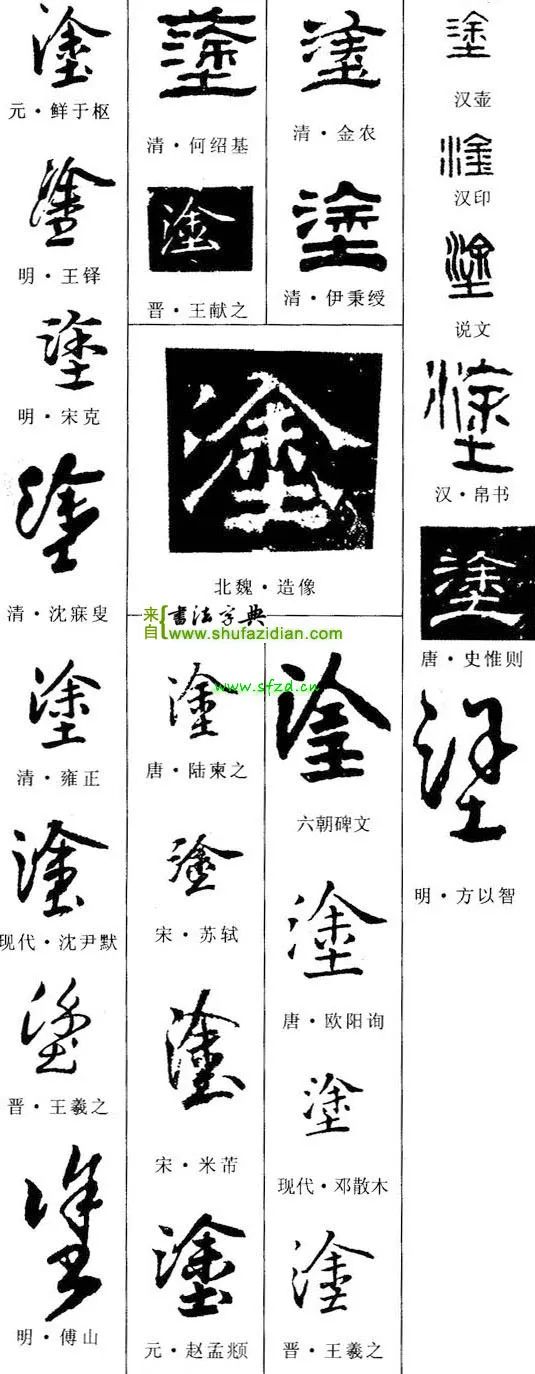 塗
元·鲜于枢
塗
明·王铎
塗
明·宋克
塗
清·沈寐叟
塗
清·雍正
塗
现代·沈尹默
塗
晋·王羲之
塗
明·傅山
塗
清·何绍基
塗
晋·王献之
塗
清·金农
塗
清·伊秉绶
塗
北魏·造像
来自
书法字典
www.shufazidian.com
www.sfzd.cn
塗
唐·陆柬之
塗
宋·苏轼
塗
宋·米芾
塗
元·赵孟頫
塗
六朝碑文
塗
唐·欧阳询
塗
现代·邓散木
塗
晋·王羲之
塗
汉壶
塗
汉印
塗
说文
塗
汉·帛书
塗
唐·史惟则
塗
明·方以智